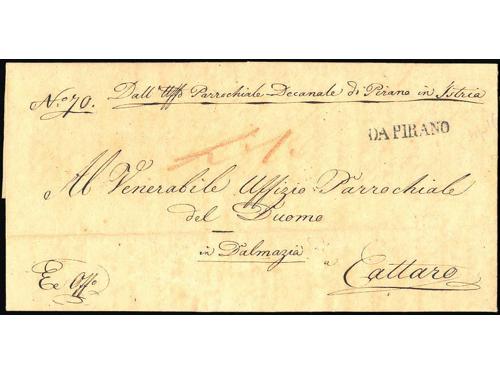 Dall' Uffo Parrochiale Decanale di Pirano in Istria
No. 70.
DA PIRANO
Al Venerabile Uffizio Parrochiale
del Duomo
in Dalmazia a Cattaro
Ex Offo